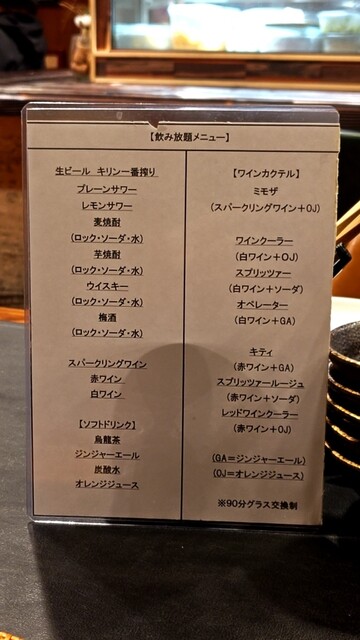 【飲み放題メニュー】
生ビール キリン一番搾り
プレーンサワー
レモンサワー
麦焼酎
(ロック・ソーダ・水)
芋焼酎
(ロック・ソーダ・水)
ウイスキー
(ロック・ソーダ・水)
梅酒
(ロック・ソーダ・水)
スパークリングワイン
赤ワイン
白ワイン
【ソフトドリンク】
烏龍茶
ジンジャーエール
炭酸水
オレンジジュース
【ワインカクテル】
ミモザ
(スパークリングワイン+OJ)
ワインクーラー
(白ワイン+OJ)
スプリッツァー
(白ワイン+ソーダ)
オペレーター
(白ワイン+GA)
キティ
(赤ワイン+GA)
スプリッツァールージュ
(赤ワイン+ソーダ)
レッドワインクーラー
(赤ワイン+OJ)
(GA=ジンジャーエール)
(OJ=オレンジジュース)
※90分グラス交換制